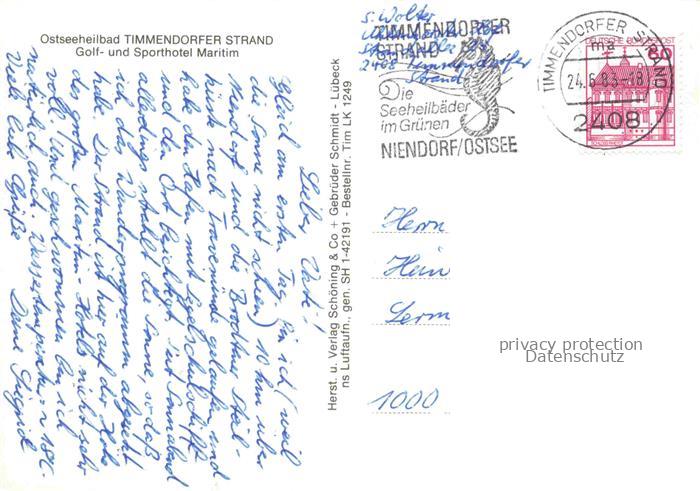 Ostseeheilbad TIMMENDORFER STRAND
Golf- und Sporthotel Maritim
Lieber Vati!
Gleich am ersten Tag bin ich (weil
die Sonne nicht schien) 10 km über
Niendorf und die Brodtner Steil-
küste nach Travemünde gelaufen und
habe den Hafen mit Segelschulschiff
und den Ort besichtigt. Seit Sonnabend
allerdings strahlt die Sonne, so daß
ich das Wanderprogramm abgesetzt
habe. Der Strand ist hier auf der Höhe
des großen Maritim-Hotels nicht sehr
voll. Und geschwommen bin ich
natürlich auch. Wassertemperatur 18°C.
Viele liebe Grüße Deine Sigrid
Herst. u. Verlag Schöning & Co + Gebrüder Schmidt - Lübeck
ns Luftaufn., gen. SH 1-42191 - Bestellnr. Tim LK 1249
S. Wolter
2408 Timmendorfer
Strand
TIMMENDORFER
STRAND
Die
Seeheilbäder
im Grünen
NIENDORF/OSTSEE
TIMMENDORFER STRAND
ma
24.6.83-18
2408
DEUTSCHE BUNDESPOST
60
Herrn
Hein
1000
privacy protection
Datenschutz